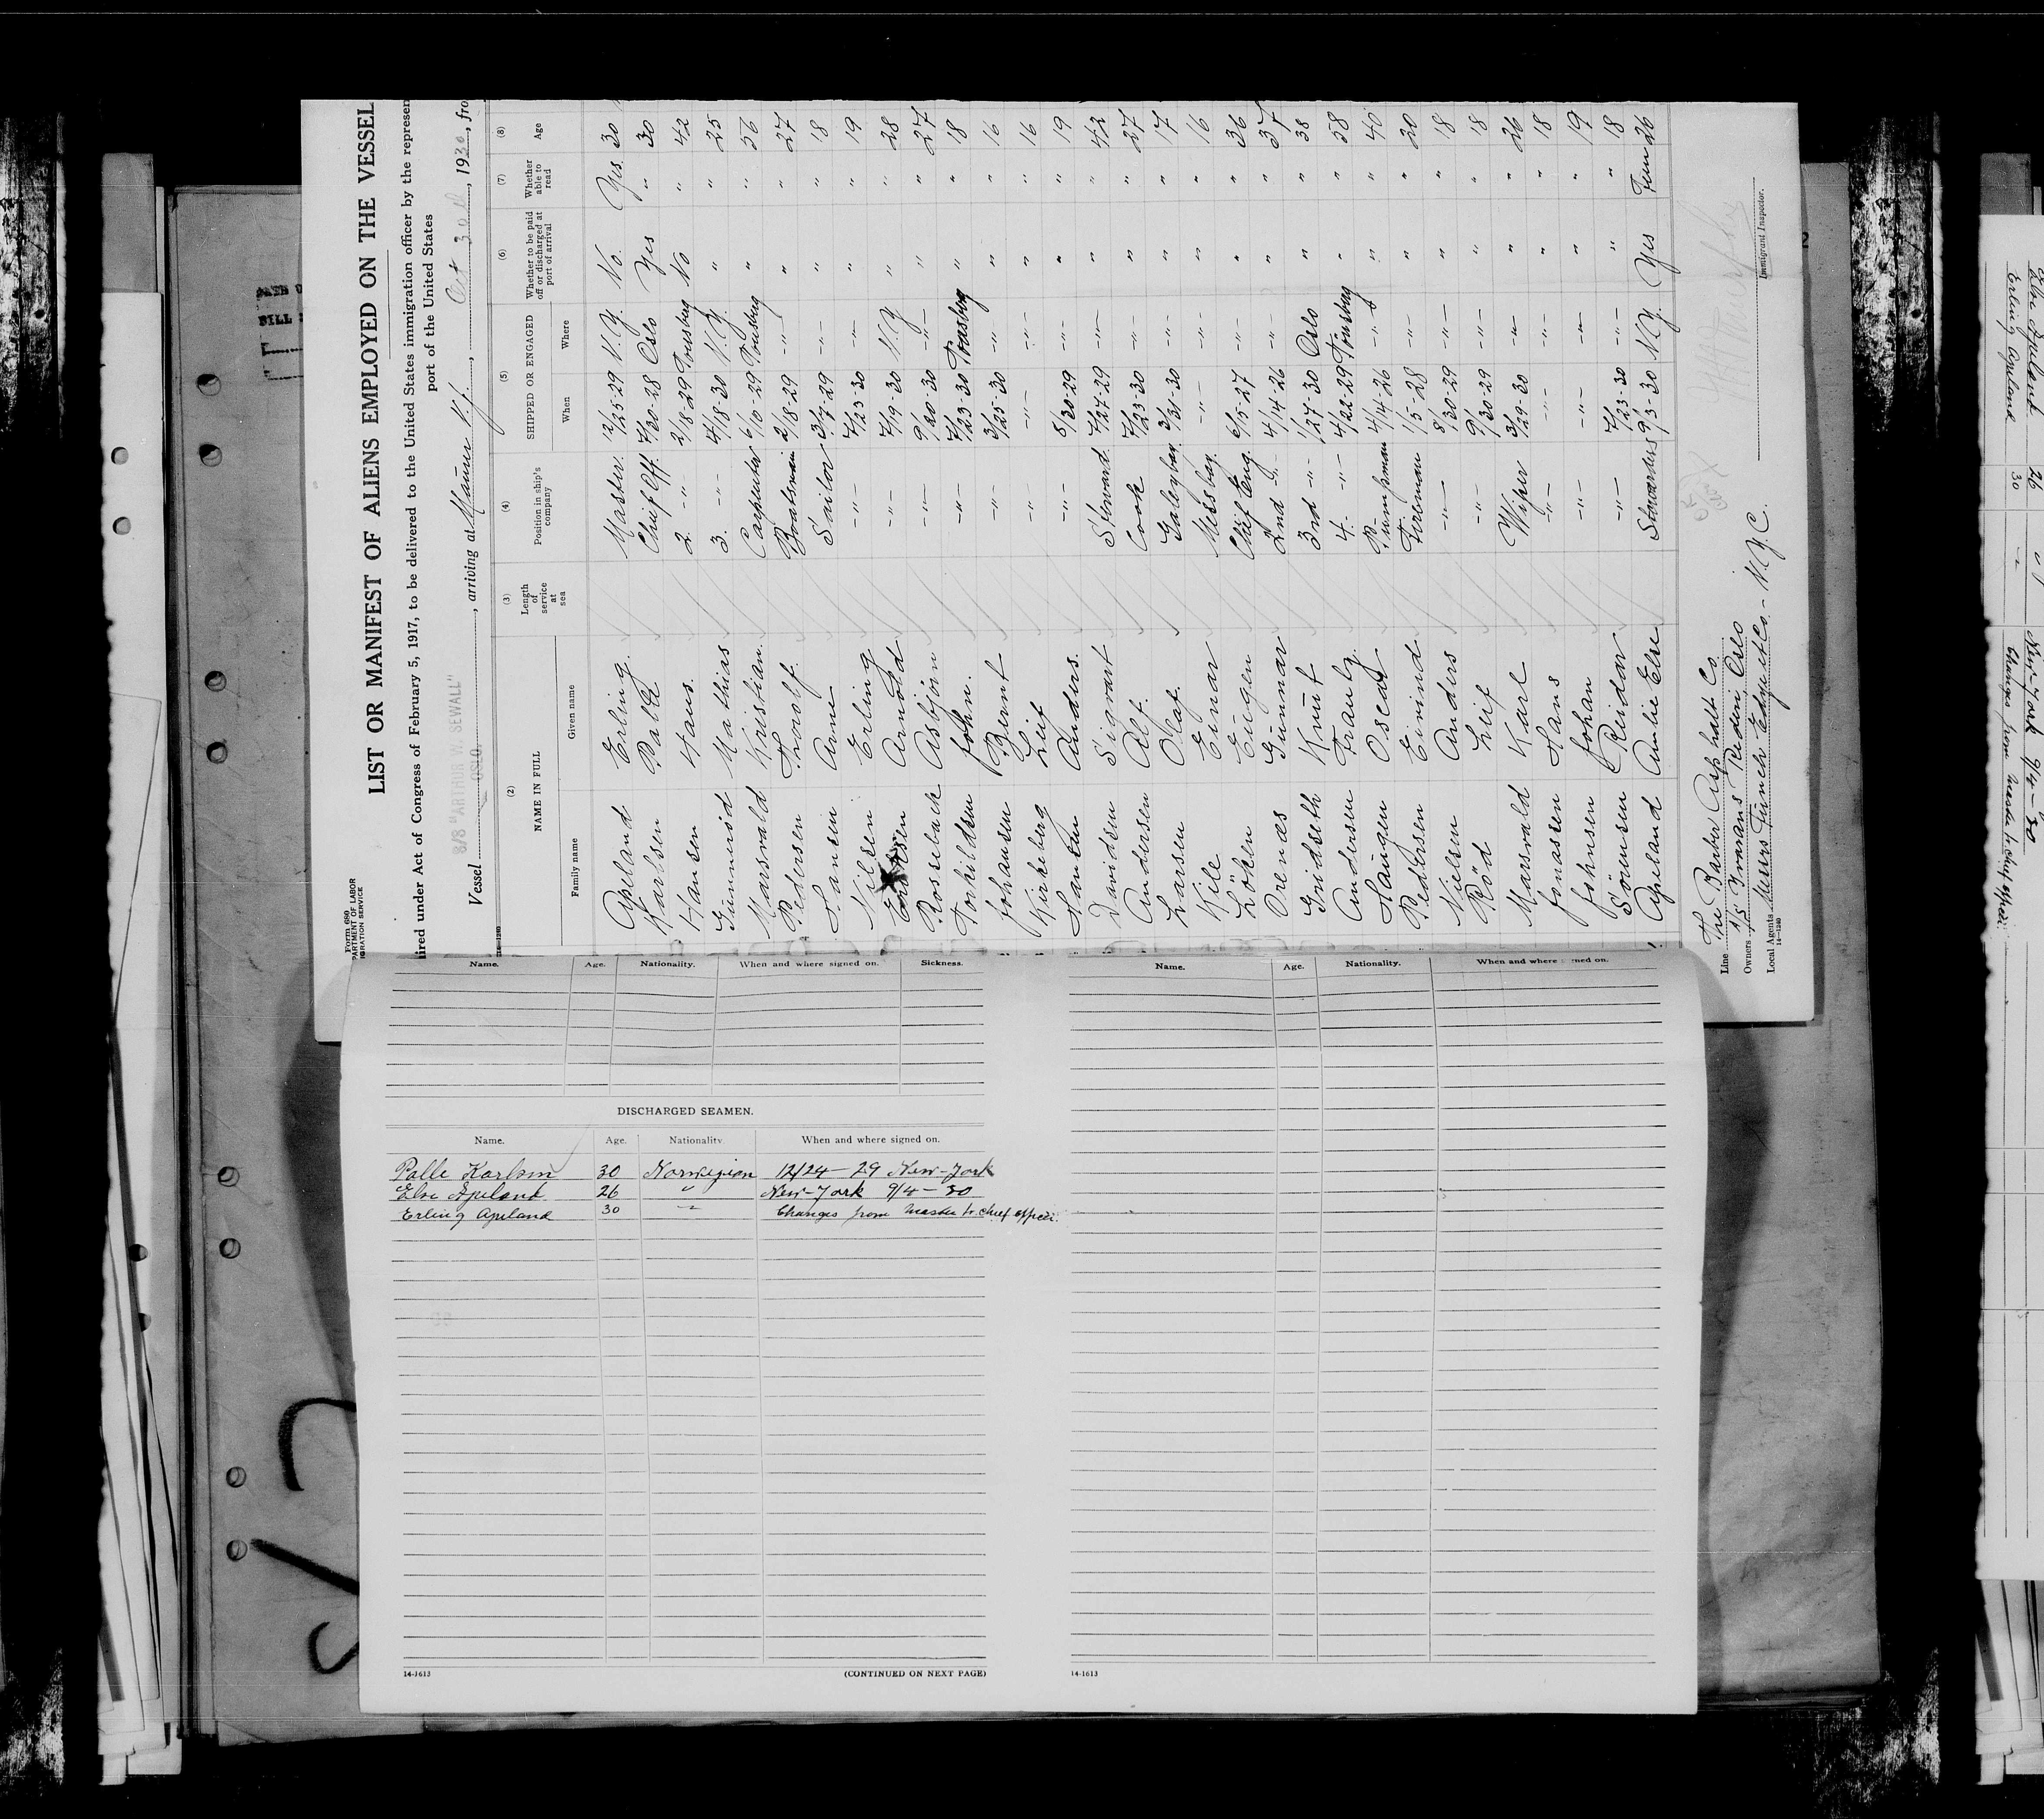 Form 680
LIST OR MANIFEST OF ALIENS EMPLOYED ON THE VESSEL
ired under Act of Congress of February 5, 1917, to be delivered to the United States immigration officer by the represen
port of the United States
Vessel S/S "ARTHUR W. SEWALL" OSLO, arriving at Maurer N.J., Oct 30th, 1930, fro
(2) (3) (4) (5) (6) (7) (8)
NAME IN FULL Length of service at sea Position in ship's company SHIPPED OR ENGAGED Whether to be paid off or discharged at port of arrival Whether able to read Age
Family name Given name When Where
Apeland Erling. Master. 12/25-29 N.Y. No. Yes. 30
Karlsen Palle Chief Off. 4/30-28 Oslo Yes " 30
Hansen Hans. 2. -"- 2/18-29 Tonsberg No " 42
Gunnerød Mathias 3. -"- 4/18-30 N.Y. " " 25
Marsvald Kristian. Carpenter 6/10-29 Tonsberg " " 56
Pedersen Thoralf. Boatsman 2/18-29 -"- " " 27
Hansen Arne Sailor 3/7-29 -"- " " 18
Nilsen Erling -"- 7/23-30 -"- " " 19
Arnold -"- 7/19-30 N.Y " " 28
Rossebach Asbjörn -"- 9/20-30 -"- " " 27
Torkildsen John. -"- 7/23-30 Tonsberg " " 18
Johansen Bernt -"- 3/25-30 -"- " " 16
Kirkeberg Leif -"- -"- -"- " " 16
Hansen Anders. -"- 8/30-29 -"- " " 19
Davidsen Sigvart Steward. 7/27-29 -"- " " 42
Andersen Alf. Cook 7/23-30 -"- " " 27
Larsen Olaf. Galeyboy. 3/31-30 -"- " " 17
Kile Einar Messboy. -"- -"- " " 16
Löken Eugen Chief Eng. 6/15-27 -"- " " 36
Orenæs Gunnar 2nd -"- 4/14-26 -"- " " 37
Gridseth Knut 3rd -"- 1/27-30 Oslo " " 38
Andersen Frantz. 4. -"- 4/22-29 Tonsberg " " 58
Haugen Oscar Pumpman 4/14-26 -"- " " 40
Pedersen Eivind Fireman 1/5-28 -"- " " 20
Nielsen Anders -"- 8/30-29 -"- " " 18
Röd Leif -"- 9/30-29 -"- " " 18
Marsvald Karl Wiper 3/29-30 -"- " " 26
Jonassen Hans -"- -"- -"- " " 18
Johnsen Johan -"- -"- -"- " " 19
Sörensen Reidar -"- 7/23-30 -"- " " 18
Apeland Amlie Else Stewardess 9/3-30 N.Y. Yes Fem 26
Line The Barber Asphalt Co.
Owners A/S Ivarans Rederi Oslo
Local Agents Messrs Funch Edye & Co. - N.Y.C.
14-1240
Immigrant Inspector.
Name. Age. Nationality. When and where signed on. Sickness.
DISCHARGED SEAMEN.
Name. Age. Nationality. When and where signed on.
Palle Karlsen 30 Norwegian 12/24-29 New-York
Else Apeland 26 " New-York 9/4-30
Erling Apeland 30 -"- Changes from Master to chief officer.
14-1613
(CONTINUED ON NEXT PAGE)
Name. Age. Nationality. When and where signed on.
14-1613